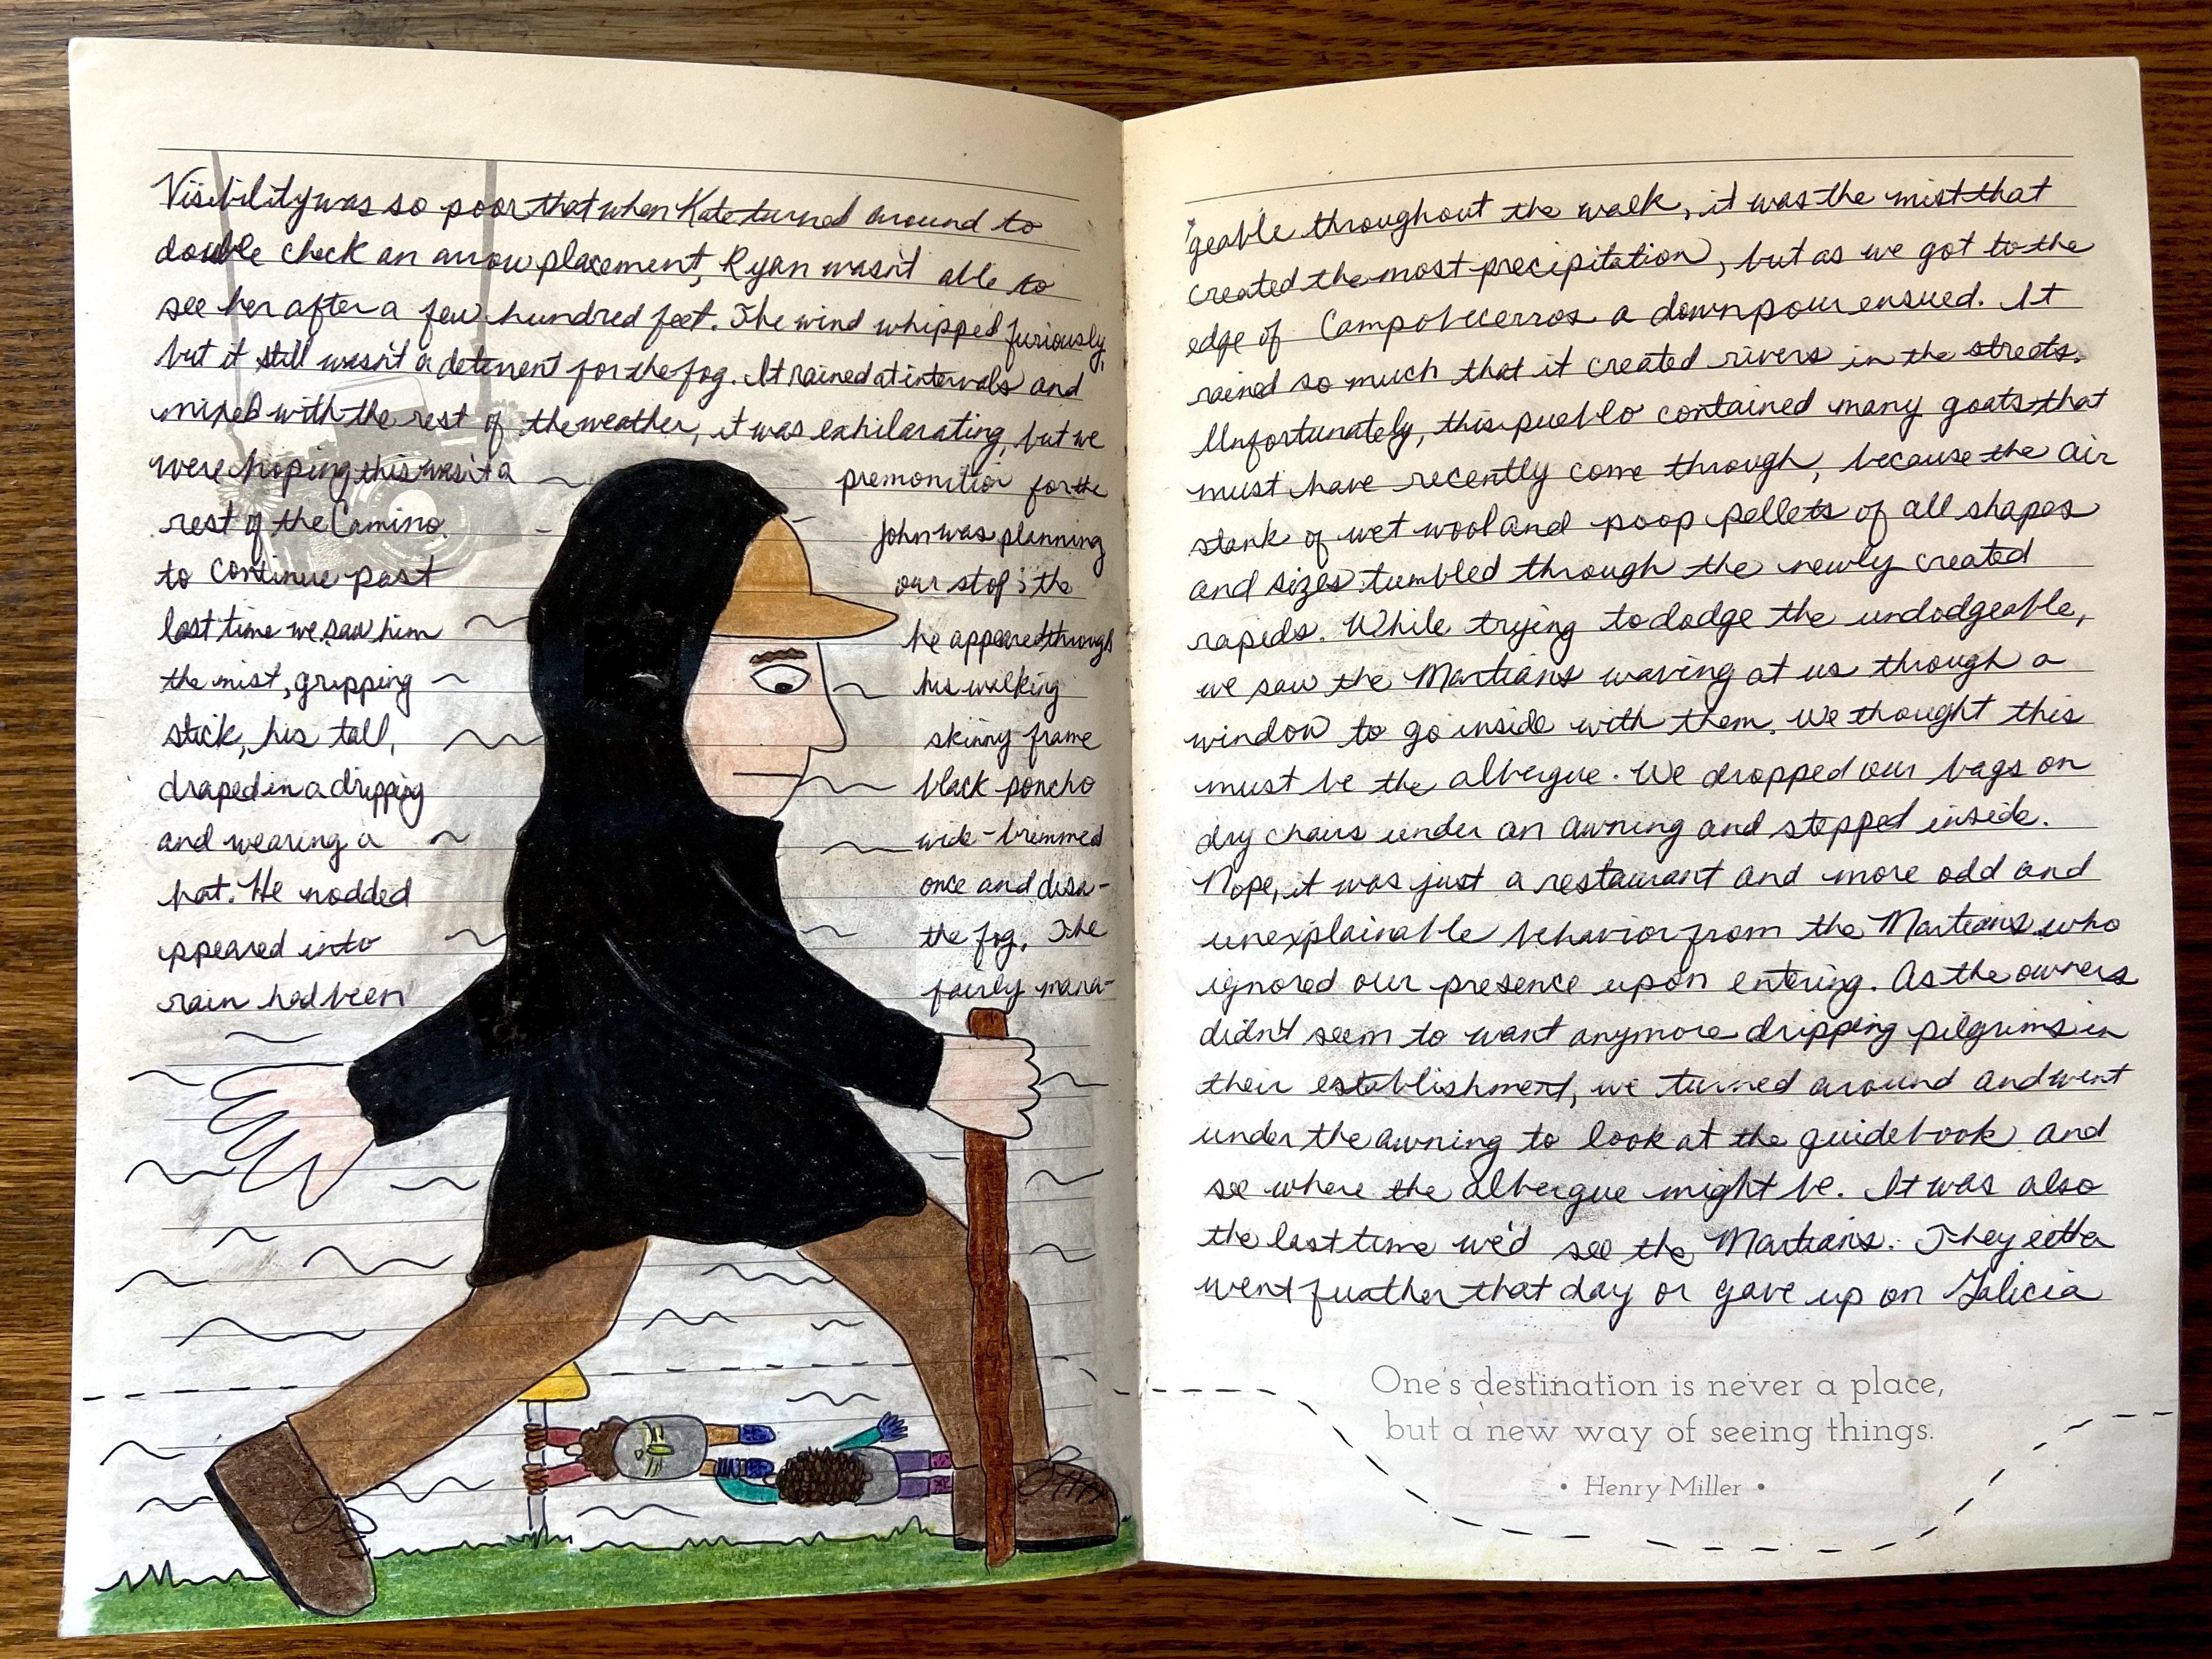 Visibility was so poor that when Kate turned around to
double check an arrow placement, Ryan wasn't able to
see her after a few hundred feet. The wind whipped furiously,
but it still wasn't a deterrent for the fog. It rained at intervals and
mixed with the rest of the weather, it was exhilarating, but we
were hoping this wasn't a premonition for the
rest of the Camino. John was planning
to continue past our stop; the
last time we saw him he appeared through
the mist, gripping his walking
stick, his tall, skinny frame
draped in a dripping black poncho
and wearing a wide-brimmed
hat. He nodded once and disa-
ppeared into the fog. The
rain had been fairly mana-
geable throughout the walk, it was the mist that
created the most precipitation, but as we got to the
edge of Campobecerros a downpour ensued. It
rained so much that it created rivers in the streets.
Unfortunately, this pueblo contained many goats that
must have recently come through, because the air
stank of wet wool and poop pellets of all shapes
and sizes tumbled through the newly created
rapids. While trying to dodge the undodgeable,
we saw the Martians waving at us through a
window to go inside with them. We thought this
must be the albergue. We dropped our bags on
dry chairs under an awning and stepped inside.
Nope, it was just a restaurant and more odd and
unexplainable behavior from the Martians who
ignored our presence upon entering. As the owners
didn't seem to want anymore dripping pilgrims in
their establishment, we turned around and went
under the awning to look at the guidebook and
see where the albergue might be. It was also
the last time we'd see the Martians. They either
went fuather that day or gave up on Galicia
One's destination is never a place,
but a new way of seeing things.
• Henry Miller •